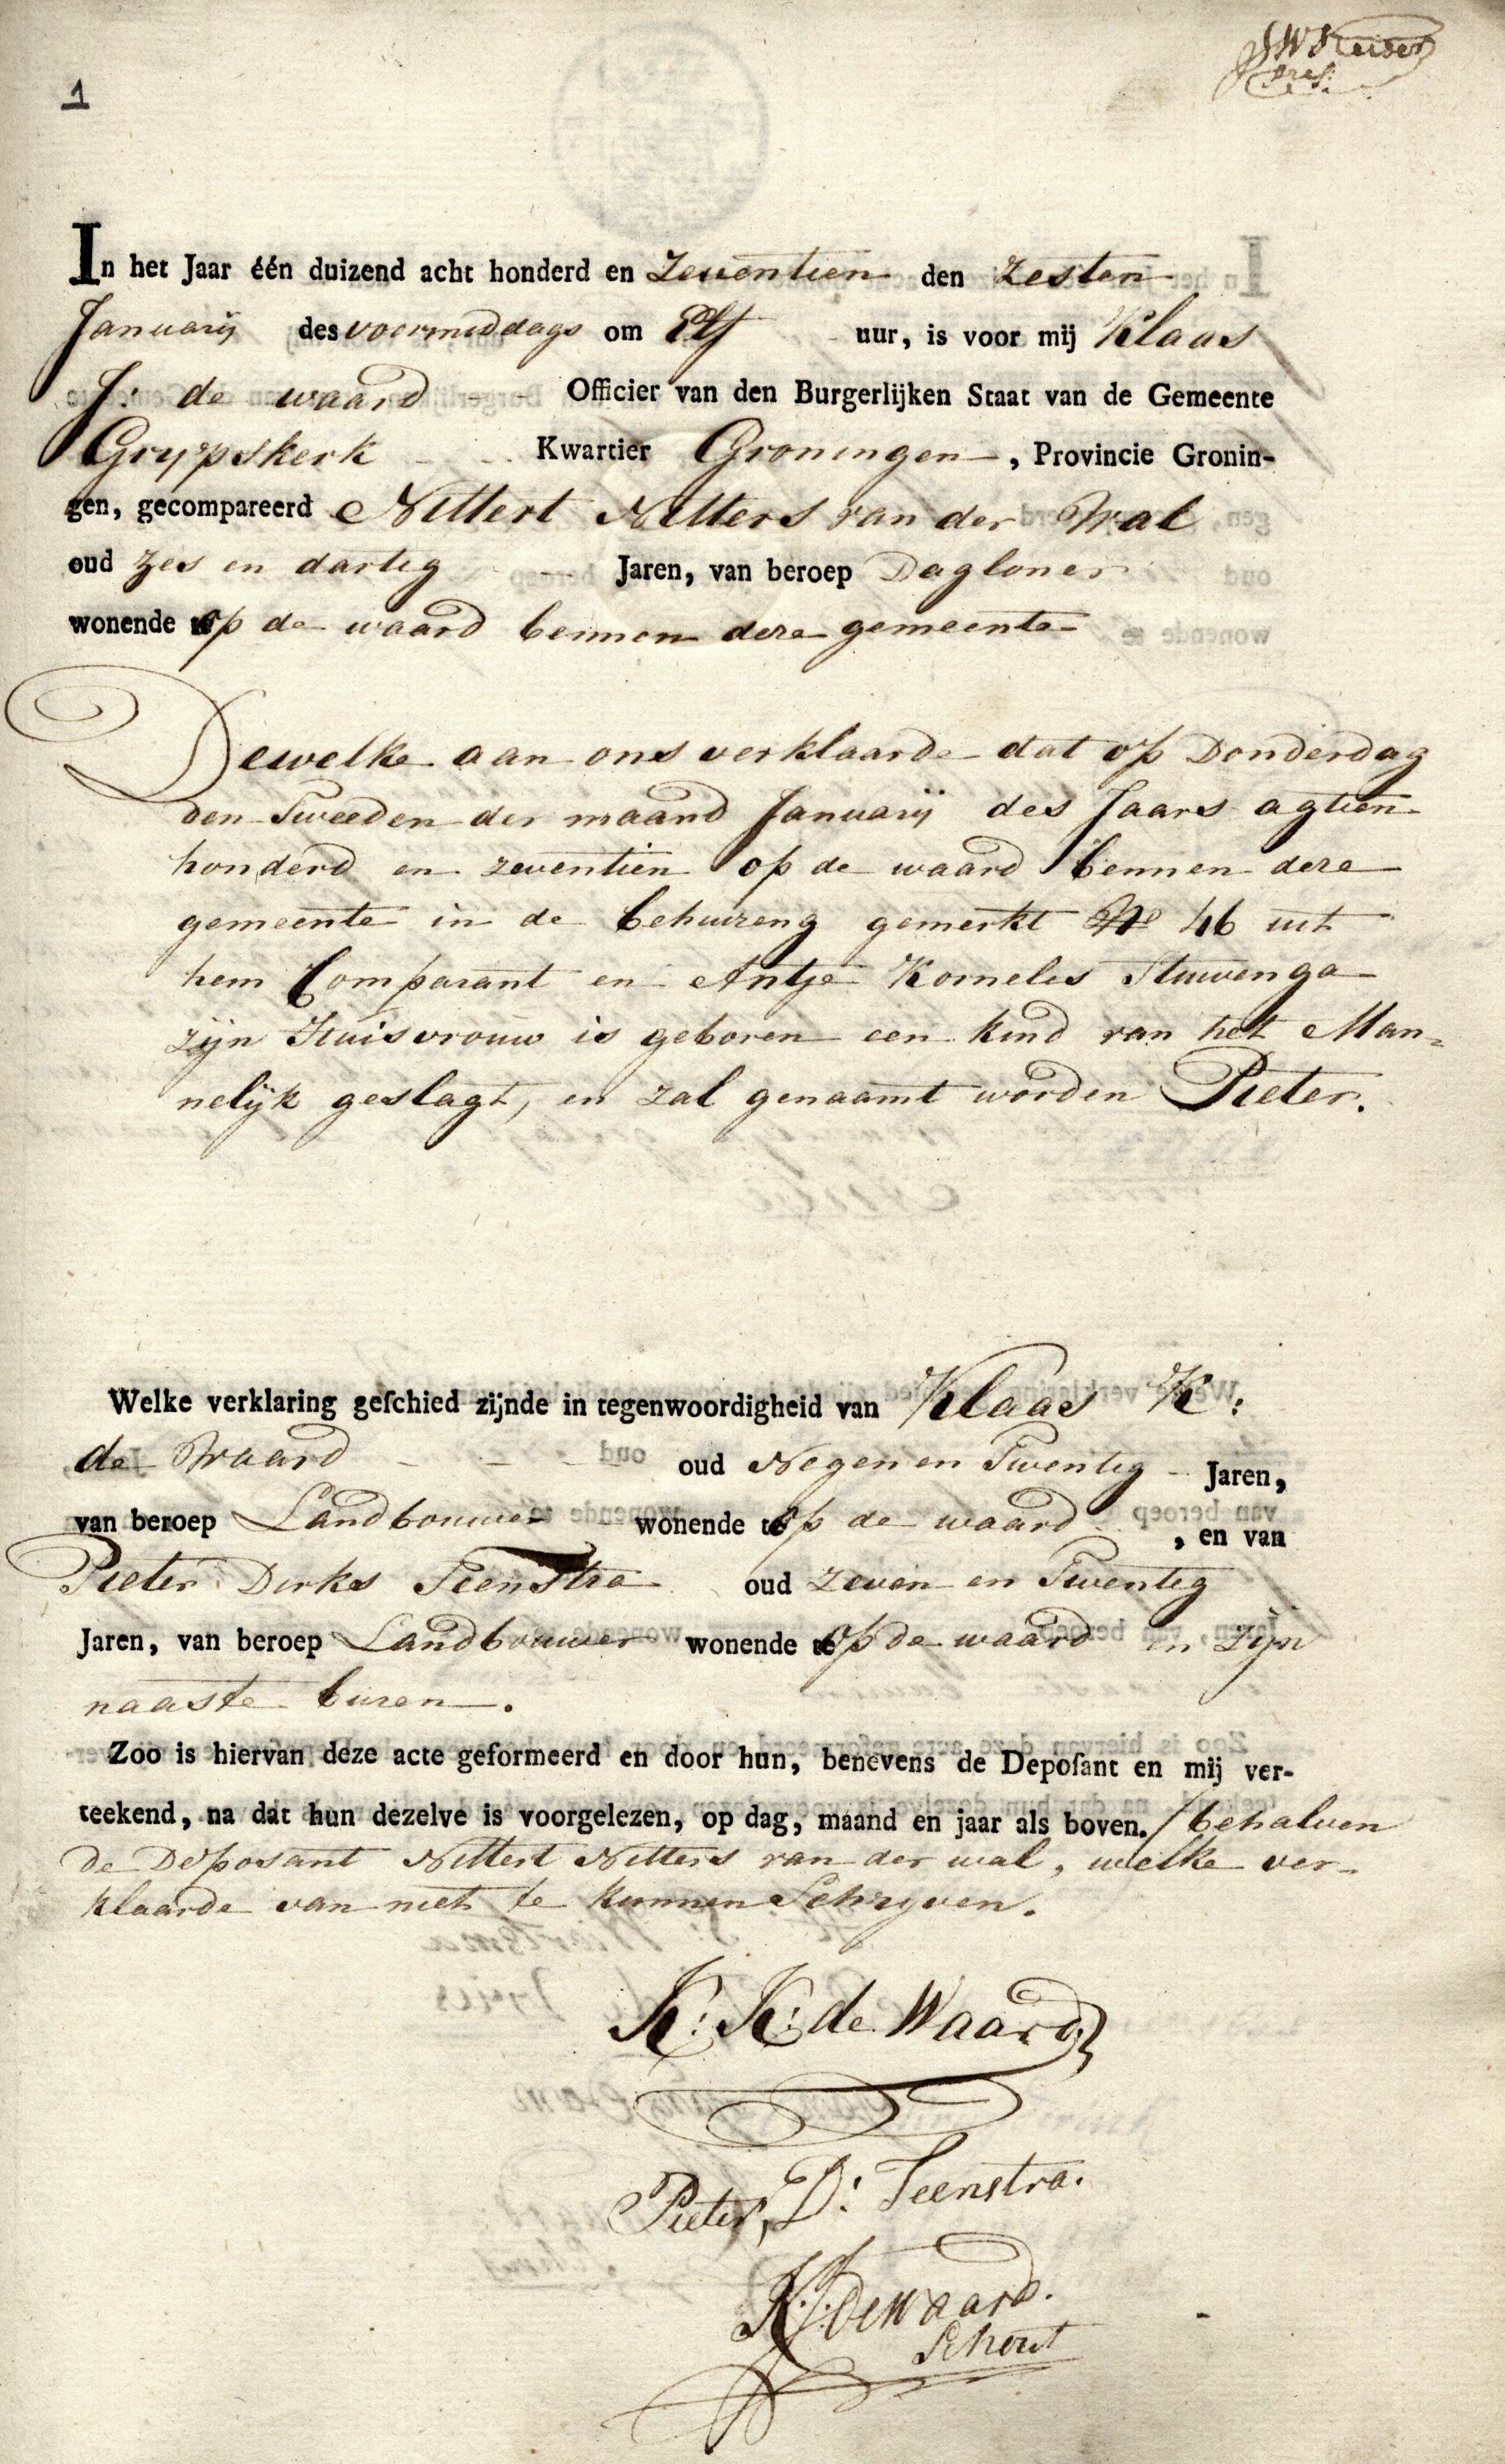 1
In het Jaar één duizend acht honderd en Zeuentien den Zesten
Januarij des voormiddags om Elf uur, is voor mij Klaas
J: de waard Officier van den Burgerlijken Staat van de Gemeente
Grypskerk Kwartier Groningen, Provincie Gronin-
gen, gecompareerd Nittert Nitters van der Wal
oud Zes en dartig Jaren, van beroep Dagloner
wonende op de waard bennen deze gemeente
Dewelke aan ons verklaarde dat op Donderdag
den Tweeden der maand Januarij des Jaars agtien
honderd en zeventien op de waard bennen deze
gemeente in de behuizeng gemerkt No 46 uit
hem Comparant en Antje Kornelis Stuwenga
zijn Huisvrouw is geboren een kend van het Man=
nelijk geslagt, en zal genaamt worden Pieter.
Welke verklaring geſchied zijnde in tegenwoordigheid van Klaas K:
de Waard oud Negen en Twenteg Jaren,
van beroep Landbouwer wonende op de waard, en van
Pieter Derks Teenstra oud Zeven en Twenteg
Jaren, van beroep Landbouwer wonende op de waard en zijn
naaste buren.
Zoo is hiervan deze acte geformeerd en door hun, benevens de Depoſant en mij ver-
teekend, na dat hun dezelve is voorgelezen, op dag, maand en jaar als boven. / behalven
de Deposant Nittert Nitters van der wal, welke ver-
klaarde van niet te kunnen Schryven.
K: K: de Waard
Pieter, D: Teenstra.
K: J: de Waard.
Schout